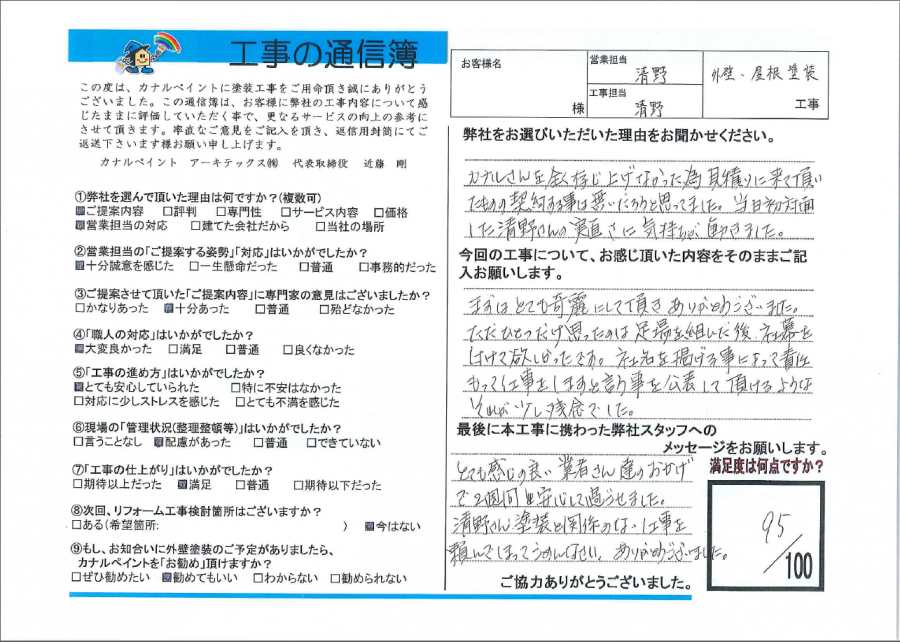 工事の通信簿
この度は、カナルペイントに塗装工事をご用命頂き誠にありがとう
ございました。この通信簿は、お客様に弊社の工事内容について感
じたままに評価していただく事で、更なるサービスの向上の参考に
させて頂きます。率直なご意見をご記入を頂き、返信用封筒にてご
返送下さいます様お願い申し上げます。
カナルペイント アーキテックス㈱ 代表取締役 近藤 剛
①弊社を選んで頂いた理由は何ですか?(複数可)
■ご提案内容 □評判 □専門性 □サービス内容 □価格
■営業担当の対応 □建てた会社だから □当社の場所
②営業担当の「ご提案する姿勢」「対応」はいかがでしたか?
■十分誠意を感じた □一生懸命だった □普通 □事務的だった
③ご提案させて頂いた「ご提案内容」に専門家の意見はございましたか?
□かなりあった ■十分あった □普通 □殆どなかった
④「職人の対応」はいかがでしたか?
■大変良かった □満足 □普通 □良くなかった
⑤「工事の進め方」はいかがでしたか?
■とても安心していられた □特に不安はなかった
□対応に少しストレスを感じた □とても不満を感じた
⑥現場の「管理状況(整理整頓等)」はいかがでしたか?
□言うことなし ■配慮があった □普通 □できていない
⑦「工事の仕上がり」はいかがでしたか?
□期待以上だった ■満足 □普通 □期待以下だった
⑧次回、リフォーム工事検討箇所はございますか?
□ある(希望箇所: ) ■今はない
⑨もし、お知合いに外壁塗装のご予定がありましたら、
カナルペイントを「お勧め」頂けますか?
□ぜひ勧めたい ■勧めてもいい □わからない □勧められない
お客様名
様
営業担当
清野
工事担当
清野
外壁、屋根塗装
工事
弊社をお選びいただいた理由をお聞かせください。
カナルさんを全く存じ上げてなかった為見積りに来て頂い
たものの契約する事は無いだろうと思ってました。当日初対面
した清野さんの実直さに気持ちが動きました。
今回の工事について、お感じ頂いた内容をそのままご記
入お願いします。
まずはとても奇麗にして頂きありがとうございました。
ただひとつだけ思ったのは足場を組んだ後、社幕を
はけて欲しかったです。社名を掲げる事によって責任
もって工事をしますと言う事を公表して頂けるような
それが少し残念でした。
最後に本工事に携わった弊社スタッフへの
メッセージをお願いします。
とても感じの良い業者さん達のおかげ
で2週間安心して過ごせました。
清野さん塗装と関係のない工事を
頼んでしまってごめんなさい。ありがとうございました。
満足度は何点ですか?
95
/100
ご協力ありがとうございました。